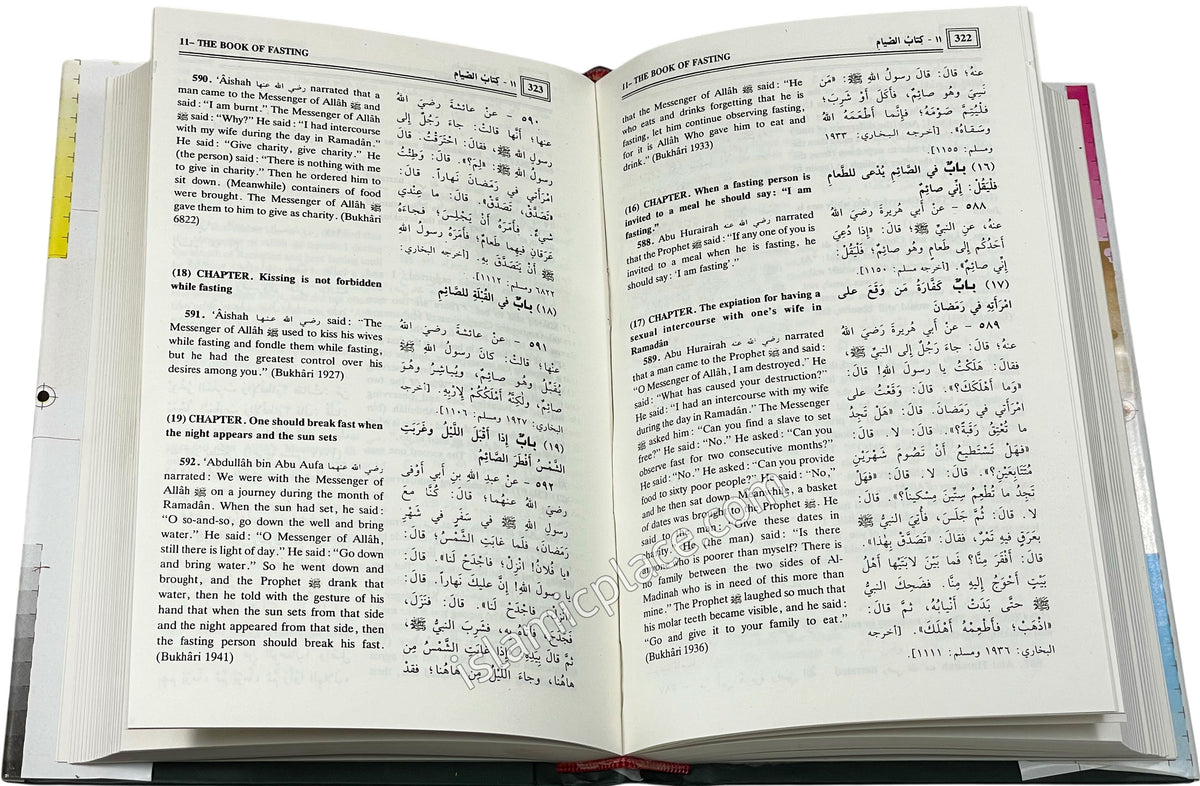 11– THE BOOK OF FASTING
١١ - كِتابُ الصِّيام
322
that the Messenger of Allâh ﷺ said: “He
who eats and drinks forgetting that he is
fasting, let him continue observing fasting,
for it is Allâh Who gave him to eat and
drink.” (Bukhâri 1933)
(16) CHAPTER. When a fasting person is
invited to a meal he should say: “I am
fasting.”
588. Abu Hurairah رضي الله عنه narrated
that the Prophet ﷺ said: “If any one of you is
invited to a meal when he is fasting, he
should say: ‘I am fasting’.”
(17) CHAPTER. The expiation for having a
sexual intercourse with one’s wife in
Ramadân
589. Abu Hurairah رضي الله عنه narrated
that a man came to the Prophet ﷺ and said:
“O Messenger of Allâh, I am destroyed.” He
said: “What has caused your destruction?”
He said: “I had an intercourse with my wife
during the day in Ramadân.” The Messenger
ﷺ asked him: “Can you find a slave to set
free?” He said: “No.” He asked: “Can you
observe fast for two consecutive months?”
He said: “No.” He asked: “Can you provide
food to sixty poor people?” He said: “No,”
and he then sat down. Meanwhile, a basket
of dates was brought to the Prophet ﷺ. He
said to the man: “Give these dates in
charity.” He (the man) said: “Is there
anyone who is poorer than myself? There is
no family between the two sides of Al-
Madinah who is in need of this more than
mine.” The Prophet ﷺ laughed so much that
his molar teeth became visible, and he said:
“Go and give it to your family to eat.”
(Bukhâri 1936)
عنهُ؛ قالَ: قالَ رسولُ اللهِ ﷺ: «مَن
نَسِيَ وهو صائِمٌ، فأَكَلَ أَوْ شَرِبَ؛
فَلْيُتِمَّ صَوْمَهُ؛ فإِنَّما أَطْعَمَهُ اللهُ
وسَقاهُ». [أخرجه البخاري: ١٩٣٣
ومسلم: ١١٥٥].
(١٦) بابٌ في الصَّائِمِ يُدْعى للطَّعامِ
فَلْيَقُلْ: إِنِّي صائِمٌ
٥٨٨ - عنْ أَبي هُريرةَ رَضيَ اللهُ
عنهُ، عنِ النبيِّ ﷺ؛ قالَ: «إِذا دُعِيَ
أَحَدُكُم إِلى طَعامٍ وهُو صائِمٌ، فَلْيَقُلْ:
إِنِّي صائِمٌ». [أخرجه مسلم: ١١٥٠].
(١٧) بابٌ كَفَّارَةُ مَن وَقَعَ على
امْرَأَتِهِ في رَمَضانَ
٥٨٩ - عنْ أَبي هُريرةَ رَضيَ اللهُ
عنهُ؛ قالَ: جاءَ رَجُلٌ إِلى النبيِّ ﷺ،
فقالَ: هَلَكْتُ يا رسولَ اللهِ! قالَ:
«وَما أَهْلَكَكَ؟». قالَ: وَقَعْتُ على
امْرَأَتي في رَمَضانَ. قالَ: «هَلْ تَجِدُ
ما تُعْتِقُ رَقَبَةً؟». قالَ: لا. قالَ:
«فهَلْ تَسْتَطيعُ أَنْ تَصُومَ شَهْرَيْنِ
مُتَتَابِعَيْنِ؟». قالَ: لا. قالَ: «فهَلْ
تَجِدُ ما تُطْعِمُ سِتِّينَ مِسْكيناً؟». قالَ:
لا. قالَ: ثُمَّ جَلَسَ، فأُتِيَ النبيُّ ﷺ
بِعَرَقٍ فيهِ تَمْرٌ، فقالَ: «تَصَدَّقْ بِهٰذا».
قالَ: أَفْقَرَ مِنَّا؟ فَما بَيْنَ لابَتَيْها أَهْلُ
بَيْتٍ أَحْوَجُ إِليهِ مِنَّا. فضَحِكَ النبيُّ
ﷺ حتَّى بَدَتْ أَنْيابُهُ، ثُمَّ قالَ:
«اذْهَبْ؛ فأَطْعِمْهُ أَهْلَكَ». [أخرجه
البخاري: ١٩٣٦ ومسلم: ١١١١].
11– THE BOOK OF FASTING
١١ - كِتابُ الصِّيام
323
590. ‘Âishah رضي الله عنها narrated that a
man came to the Messenger of Allâh ﷺ and
said: “I am burnt.” The Messenger of Allâh
ﷺ said: “Why?” He said: “I had intercourse
with my wife during the day in Ramadân.”
He said: “Give charity, give charity.” He
(the person) said: “There is nothing with me
to give in charity.” Then he ordered him to
sit down. (Meanwhile) containers of food
were brought. The Messenger of Allâh ﷺ
gave them to him to give as charity. (Bukhâri
6822)
(18) CHAPTER. Kissing is not forbidden
while fasting
591. ‘Aishah رضي الله عنها said: “The
Messenger of Allâh ﷺ used to kiss his wives
while fasting and fondle them while fasting,
but he had the greatest control over his
desires among you.” (Bukhâri 1927)
(19) CHAPTER. One should break fast when
the night appears and the sun sets
592. ‘Abdullâh bin Abu Aufa رضي الله عنهما
narrated: We were with the Messenger of
Allâh ﷺ on a journey during the month of
Ramadân. When the sun had set, he said:
“O so-and-so, go down the well and bring
water.” He said: “O Messenger of Allâh,
still there is light of day.” He said: “Go down
and bring water.” So he went down and
brought, and the Prophet ﷺ drank that
water, then he told with the gesture of his
hand that when the sun sets from that side
and the night appeared from that side, then
the fasting person should break his fast.
(Bukhâri 1941)
٥٩٠ - عنْ عائشةَ رَضيَ اللهُ
عنها؛ أَنَّها قالتْ: جاءَ رَجُلٌ إِلى
رسولِ اللهِ ﷺ، فقالَ: احْتَرَقْتُ. قالَ
«لِمَ؟». قالَ: وَطِئْتُ
امْرَأَتي في رَمَضانَ نَهاراً. قالَ:
«تَصَدَّقْ، تَصَدَّقْ». قالَ: ما عِنْدي
شيءٌ. فأَمَرَهُ أَنْ يَجْلِسَ؛ فجاءَهُ
عَرَقانِ فيهِما طَعامٌ؛ فأَمَرَهُ رسولُ اللهِ
ﷺ أَنْ يَتَصَدَّقَ بِهِ. [أخرجه البخاري:
٦٨٢٢ ومسلم: ١١١٢].
(١٨) بابٌ في القُبْلَةِ للصَّائِمِ
٥٩١ - عنْ عائشةَ رَضيَ اللهُ
عنها؛ قالتْ: كانَ رسولُ اللهِ ﷺ
يُقَبِّلُ وهُو صائِمٌ، ويُباشِرُ وهُوَ
صائِمٌ، ولٰكِنَّهُ أَمْلَكُكُمْ لإِرْبِهِ. [أخرجه
البخاري: ١٩٢٧ ومسلم: ١١٠٦].
(١٩) بابٌ إِذا أَقْبَلَ اللَّيْلُ وغَرَبَتِ
الشَّمْسُ أَفْطَرَ الصَّائِمُ
٥٩٢ - عنْ عبدِ اللهِ بنِ أَبي أَوْفى
رَضيَ اللهُ عنهُما؛ قالَ: كُنَّا مَعَ
رسولِ اللهِ ﷺ في سَفَرٍ في شَهْرِ
رَمَضانَ، فلَمَّا غابَتِ الشَّمْسُ؛ قالَ:
«يا فُلانُ! انْزِلْ؛ فاجْدَحْ لَنا». قالَ:
يا رسولَ اللهِ! إِنَّ عليكَ نَهاراً. قالَ:
«انْزِلْ فاجْدَحْ لَنا». قالَ: فنَزَلَ،
فجَدَحَ، فأَتاهُ بهِ، فشَرِبَ النبيُّ ﷺ،
ثُمَّ قالَ بِيَدِهِ: «إِذا غابَتِ الشَّمْسُ مِن
هاهُنا، وجاءَ اللَّيْلُ مِن هاهُنا؛ فَقَدْ
islamicplace.com